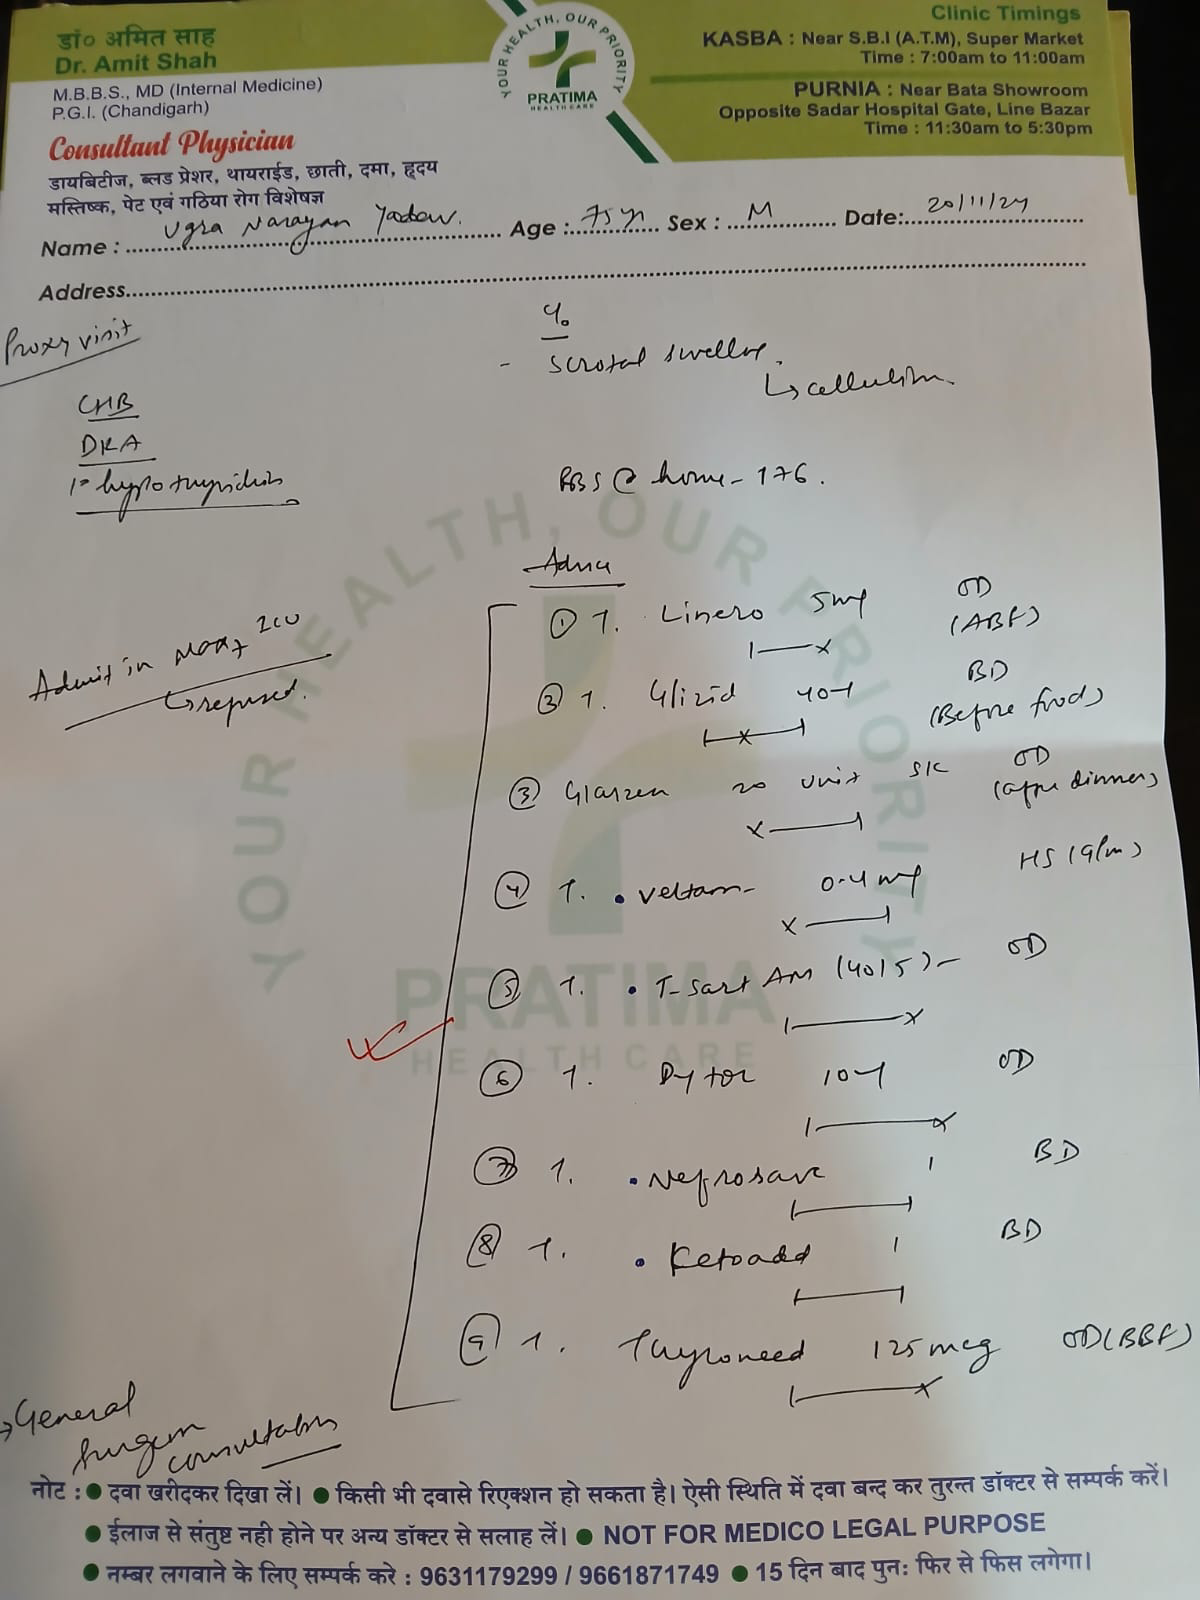 डॉ० अमित साह
Dr. Amit Shah
M.B.B.S., MD (Internal Medicine)
P.G.I. (Chandigarh)
Consultant Physician
डायबिटीज, ब्लड प्रेशर, थायराईड, छाती, दमा, हृदय
मस्तिष्क, पेट एवं गठिया रोग विशेषज्ञ
YOUR HEALTH, OUR PRIORITY
PRATIMA
HEALTH CARE
Clinic Timings
KASBA : Near S.B.I (A.T.M), Super Market
Time : 7:00am to 11:00am
PURNIA : Near Bata Showroom
Opposite Sadar Hospital Gate, Line Bazar
Time : 11:30am to 5:30pm
Name : Ugra Narayan Yadav. Age : 75yr Sex : M Date: 20/11/24
Address
Proxy visit
CHB
DKA
1° hypothyroidism
Admit in ICU
refused.
→ General
Surgeon
consultation
- Scrotal swelling.
↳ cellulitis.
RBS @ home - 176.
Advice
① T. Linero 5mg OD
(ABF)
② T. Glizid 40-1 BD
(Before food)
③ Glarzen 20 unit S/C OD
(after dinner)
④ T. Veltam - 0.4 mg HS (9pm)
⑤ T. T-Sart AM (40/5) - OD
⑥ T. 10-1 OD
⑦ T. Nefrosave 1 BD
⑧ T. Ketoadd 1 BD
⑨ T. Thyroneed 125 mcg OD (BBF)
YOUR HEALTH, OUR PRIORITY
PRATIMA
HEALTH CARE
नोट : ● दवा खरीदकर दिखा लें। ● किसी भी दवासे रिएक्शन हो सकता है। ऐसी स्थिति में दवा बन्द कर तुरन्त डॉक्टर से सम्पर्क करें।
● ईलाज से संतुष्ट नही होने पर अन्य डॉक्टर से सलाह लें। ● NOT FOR MEDICO LEGAL PURPOSE
● नम्बर लगवाने के लिए सम्पर्क करे : 9631179299 / 9661871749 ● 15 दिन बाद पुनः फिर से फिस लगेगा।